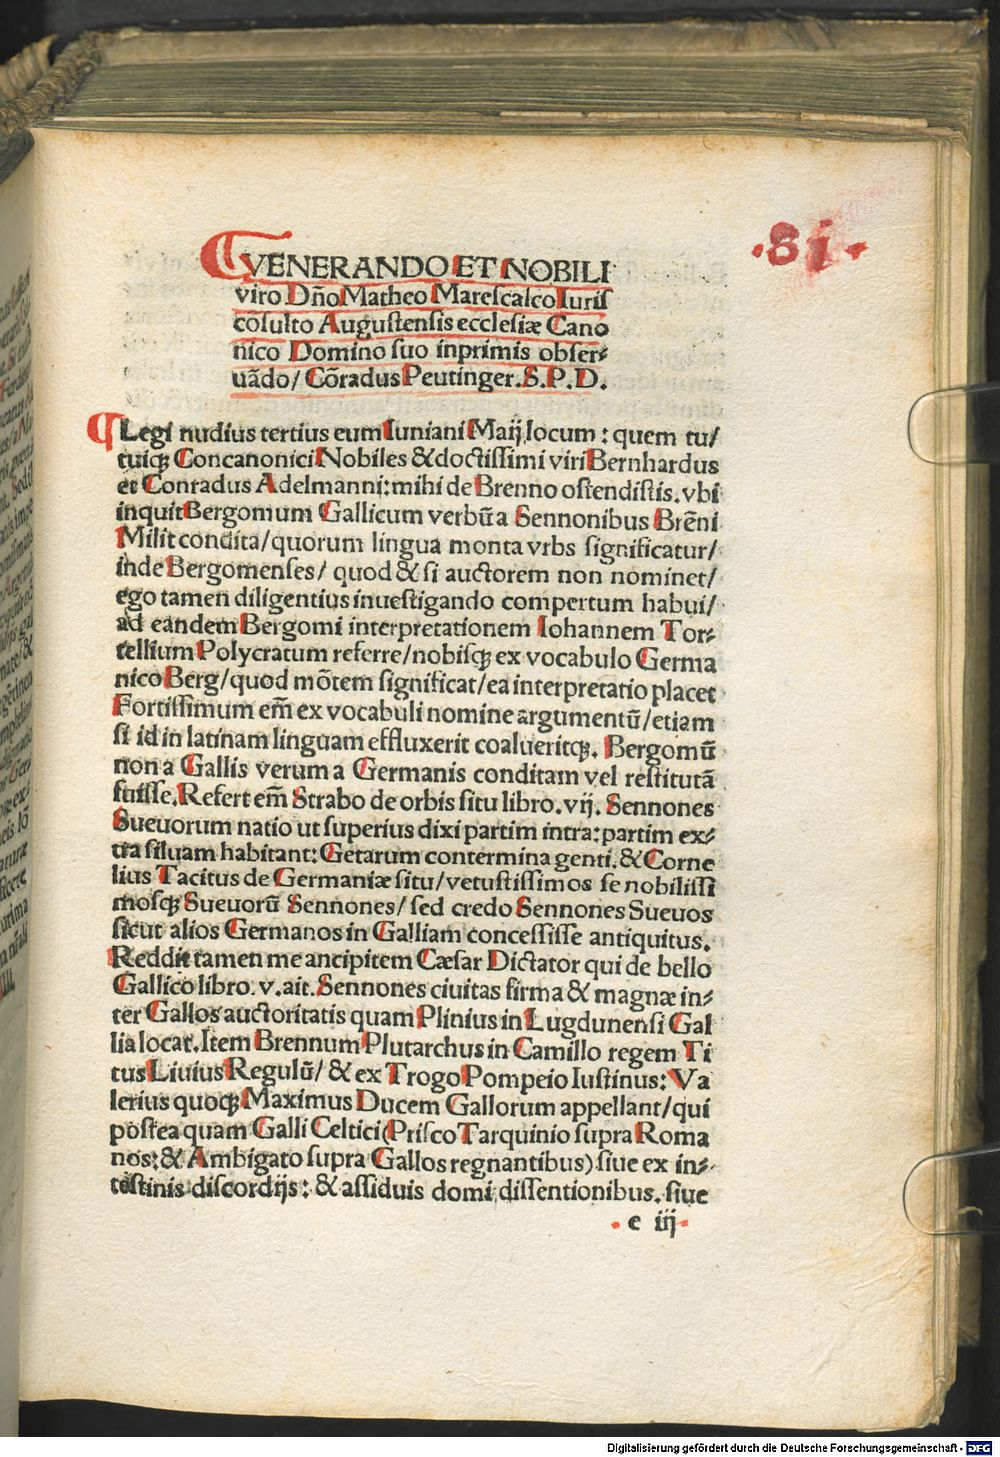 ·81·
VENERANDO ET NOBILI
viro Dño Matheo Marescalco Iuris
cõsulto Augustensis ecclesiæ Cano
nico Domino suo inprimis obser⸗
uãdo/ Cõradus Peutinger. S. P. D.
¶ Legi nudius tertius eum Iuniani Maij locum : quem tu/
tuiqꝫ Concanonici Nobiles & doctissimi viri Bernhardus
et Conradus Adelmanni: mihi de Brenno ostendistis. vbi
inquit Bergomum Gallicum verbũ a Sennonibus Brẽni
Milit condita/ quorum lingua monta vrbs significatur/
inde Bergomenses/ quod & si auctorem non nominet/
ego tamen diligentius inuestigando compertum habui/
ad eandem Bergomi interpretationem Iohannem Tor⸗
tellium Polycratum referre/ nobisqꝫ ex vocabulo Germa
nico Berg/ quod mõtem significat/ ea interpretatio placet
Fortissimum em̃ ex vocabuli nomine argumentũ/ etiam
si id in latinam linguam effluxerit coalueritqꝫ. Bergomũ
non a Gallis verum a Germanis conditam vel restitutã
fuisse. Refert em̃ Strabo de orbis situ libro. vij. Sennones
Sueuorum natio ut superius dixi partim intra: partim ex⸗
tra siluam habitant: Getarum contermina genti. & Corne
lius Tacitus de Germaniæ situ/ vetustissimos se nobilissi
mosqꝫ Sueuorũ Sennones/ sed credo Sennones Sueuos
sicut alios Germanos in Galliam concessisse antiquitus.
Reddit tamen me ancipitem Cæsar Dictator qui de bello
Gallico libro. v. ait. Sennones ciuitas firma & magnæ in⸗
ter Gallos auctoritatis quam Plinius in Lugdunensi Gal
lia locat. Item Brennum Plutarchus in Camillo regem Ti
tus Liuius Regulũ/ & ex Trogo Pompeio Iustinus: Va
lerius quoqꝫ Maximus Ducem Gallorum appellant/ qui
postea quam Galli Celtici (Prisco Tarquinio supra Roma
nos: & Ambigato supra Gallos regnantibus) siue ex in⸗
testinis discordijs: & assiduis domi dissentionibus. siue
e iij
Digitalisierung gefördert durch die Deutsche Forschungsgemeinschaft - DFG